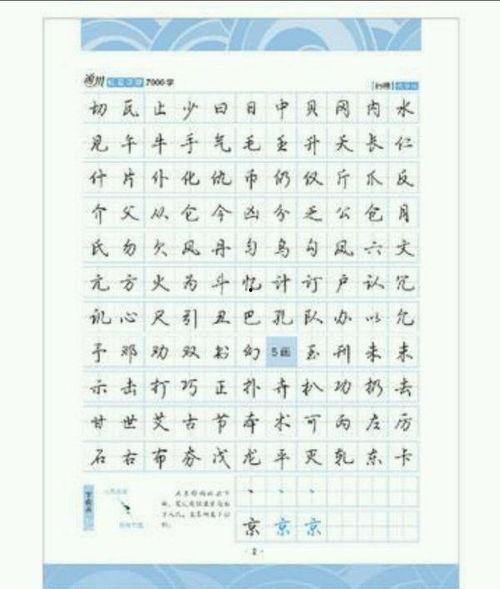 7000字
切瓦止少曰日中贝冈内水
见午牛手气毛壬升夭长仁
什片仆化仇币仍仅斤爪反
介父从仑今凶分乏公仓月
氏勿欠风丹匀乌勾凤六文
亢方火为斗忆计订户认冗
讥心尺引丑巴孔队办以允
予邓劝双书幻5画玉刊未末
示击打巧正扑卉扒功扔去
甘世艾古节本术可丙左厉
石右布夯戊龙平灭轧东卡
京京京
2